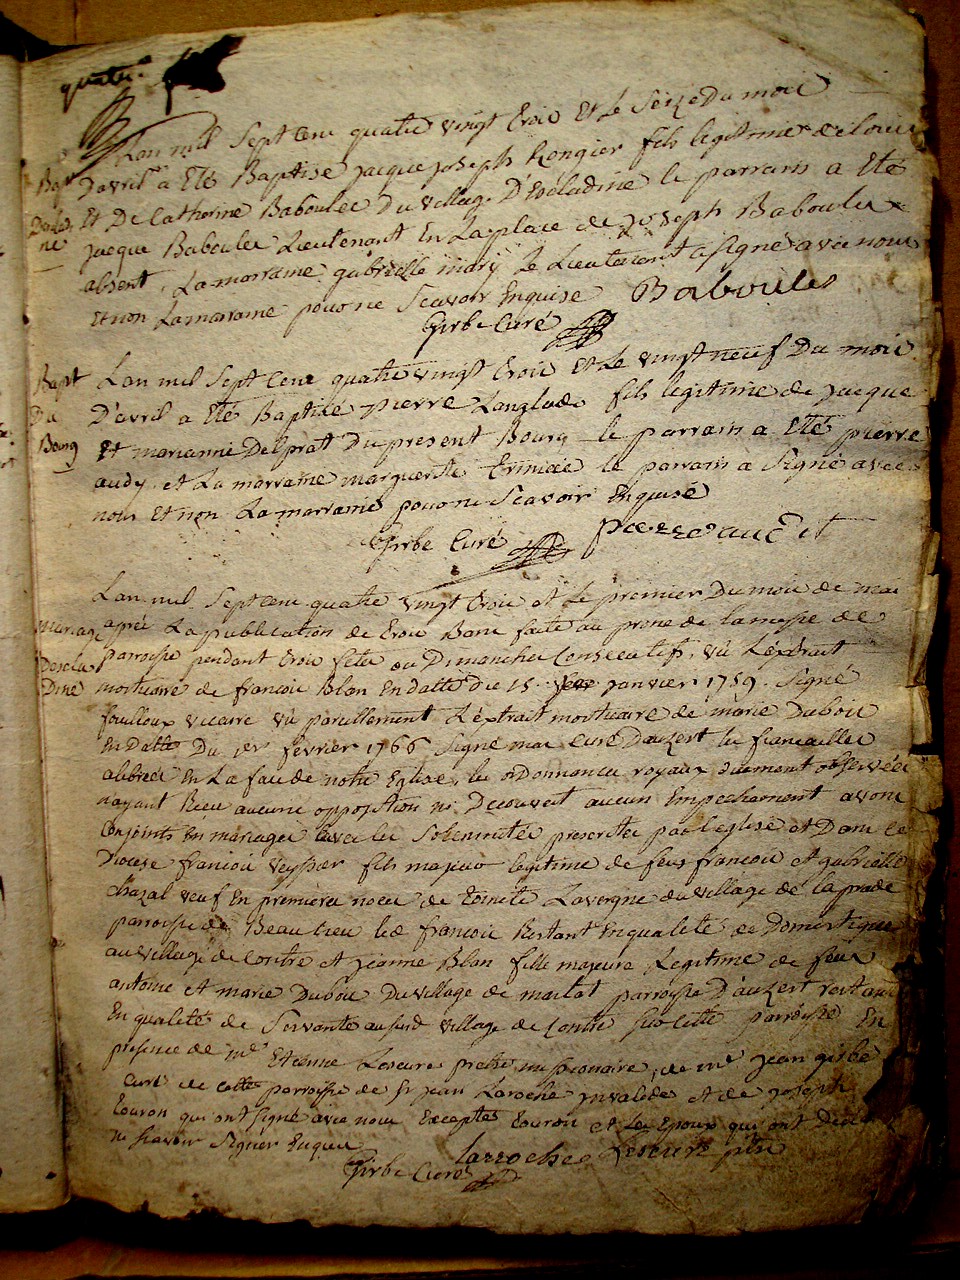 quatre
Lan mil Sept cent quatre vingt trois Et le Seize Du mois
Bapt D'avril a Eté Baptisé jacque joseph Rongier fils legitime de Louis
Et De Catherine Baboulée Du village le parrain a Eté
jacque Baboulée Lieutenant En La place de joseph Baboulée
absent, La marraine gabrielle mary Le Lieutenant a signé avec nous
Et non La marraine pour ne Scavoir Enquise Baboules
Girbe Curé
Bapt Lan mil Sept Cent quatre vingt trois Et Le vingt neuf Du mois
Du D'avril a Eté Baptisé pierre Langlade fils legitime de jacque
Bourg Et marianne Delprat Du present Bourg le parrain a Eté pierre
audy, et La marraine marguerite le parrain a Signé avec
nous Et non La marraine pour ne Scavoir Enquise
Girbe Curé pierre audit
Lan mil Sept Cent quatre vingt trois et Le premier Du mois de mai
mariage après La publication de trois Bans faite au prone de la messe de
parroisse pendant trois fetes ou Dimanches Consecutifs, vû L'extrait
mortuaire de francois Blan En datte Du 15 janvier 1759. Signé
foulloux vicaire vû pareillement L'extrait mortuaire de marie Dubois
En datte Du 1er fevrier 1766 Signé curé D'auzert les fiancailles
En La face de notre Eglise, les ordonnances royaux duement observées
n'ayant Reçu aucune opposition ni Decouvert aucun Empechement avons
Conjoints En mariage avec les Solennités prescrites par l'eglise et Dans le
Diocese francois veyssier fils majeur legitime de feus francois et gabrielle
Chazal veuf En premieres noces de toinete Lavergne du village de la prade
parroisse de Beaulieu led francois Restant En qualité de Domestique
au village de Contre et jeanne Blan fille majeure Legitime de feus
antoine et marie Dubois Du village de marlat parroisse D'auzert restante
En qualité de Servante au susd village de Contre sur cette parroisse En
presence de mre Etienne Lescure pretre missionaire, de mr jean girbe
curé de cette parroisse de Sr jean Laroche jnvalide et de joseph
touron qui ont signé avec nous Excepté touron et Les Epoux qui ont Declaré
ne Scavoir Signer Enquis
Girbe Curé larroche Lescure ptre